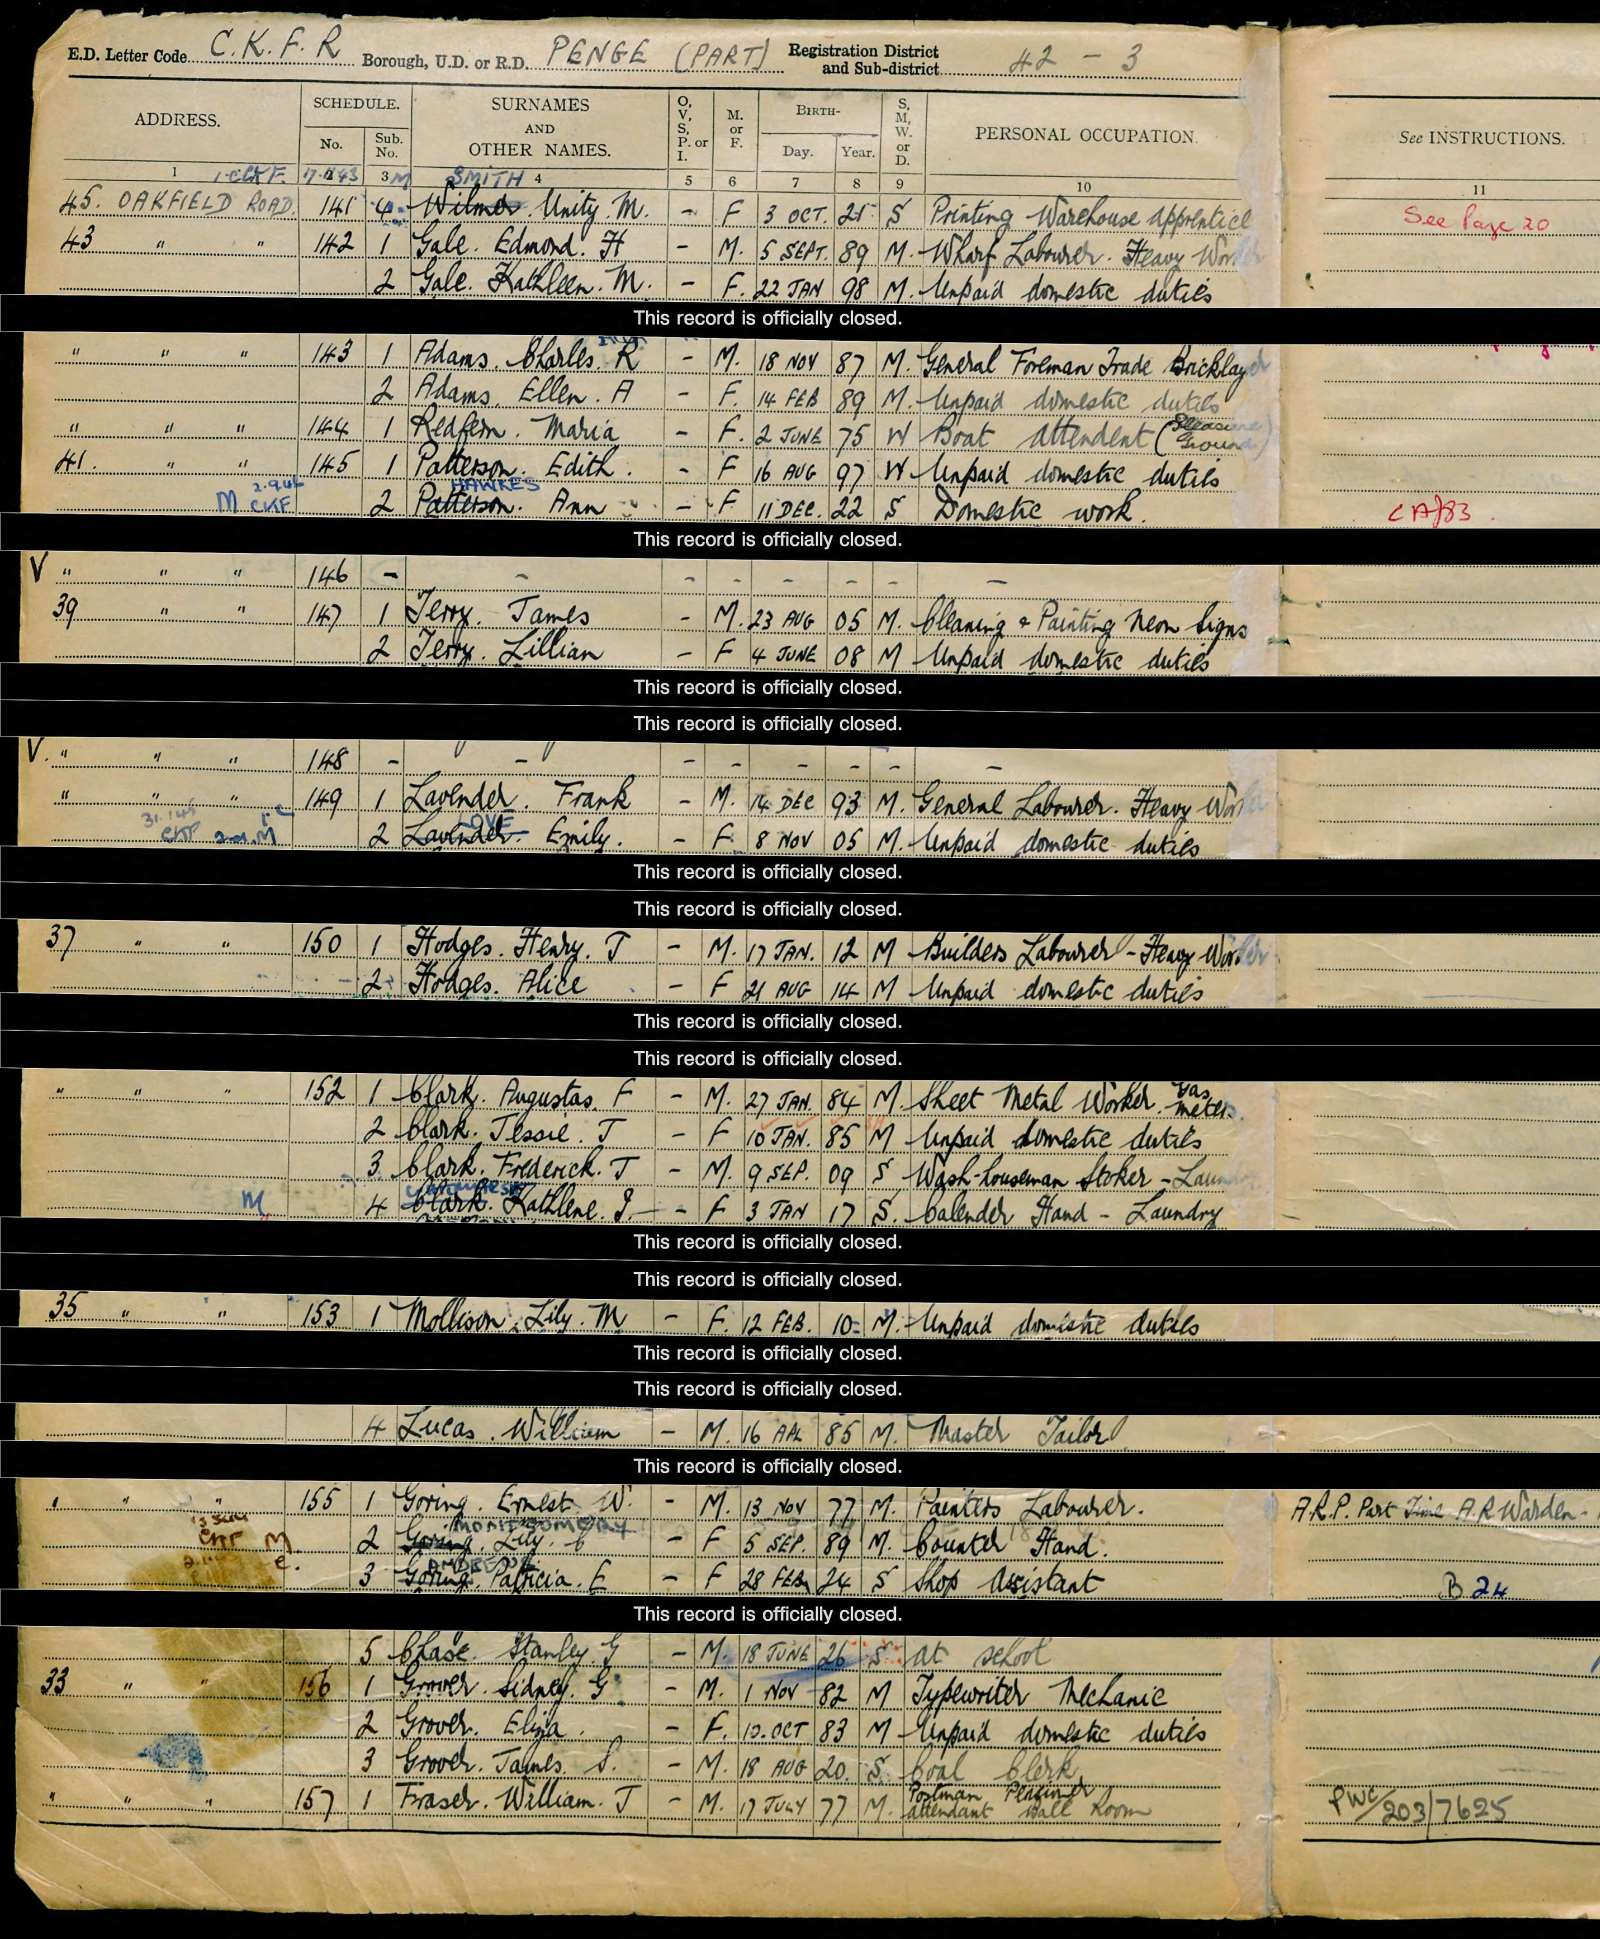 E.D. Letter Code C.K.F.R Borough, U.D. or R.D. PENGE (PART) Registration District and Sub-district 42 - 3
ADDRESS. SCHEDULE. No. Sub. No. SURNAMES AND OTHER NAMES. O, V, S, P. or I. M. or F. BIRTH- Day. Year. S, M, W. or D. PERSONAL OCCUPATION. See INSTRUCTIONS.
1 3 4 5 6 7 8 9 10 11
SMITH
45. OAKFIELD ROAD. 141 4 Wilmer Unity. M. - F 3 OCT. 21 S Printing Warehouse apprentice See Page 20
43 " " 142 1 Gale. Edmond. H - M. 5 SEPT. 89 M. Wharf Labourer. Heavy Worker
2 Gale. Kathleen. M. - F. 22 JAN 98 M. Unpaid domestic duties
This record is officially closed.
" " " 143 1 Adams. Charles. R - M. 18 NOV 87 M. General Foreman Trade Bricklayer
2 Adams. Ellen. A - F. 14 FEB 89 M. Unpaid domestic duties
" " " 144 1 Redfern. Maria - F. 2 JUNE 75 W Boat attendent (Pleasure Ground)
41. " " 145 1 Patterson. Edith. - F 16 AUG 97 W Unpaid domestic duties
M 2.9.46 CKF HAWKES
2 Patterson. Ann - F 11 DEC. 22 S Domestic work. CA/83.
This record is officially closed.
V " " " 146 - - - - - - - -
39 " " 147 1 Terry. James - M. 23 AUG 05 M. Cleaning & Painting Neon Signs
2 Terry. Lillian - F 4 JUNE 08 M Unpaid domestic duties
This record is officially closed.
This record is officially closed.
V. " " " 148 - - - - - - - -
" " " 149 1 Lavender. Frank - M. 14 DEC 93 M. General Labourer. Heavy Worker
CKF
2 Lavender. Emily. - F. 8 NOV 05 M. Unpaid domestic duties
This record is officially closed.
This record is officially closed.
37 " " 150 1 Hodges. Henry. J - M. 17 JAN. 12 M Builders Labourer - Heavy Worker
2 Hodges. Alice - F 21 AUG 14 M Unpaid domestic duties
This record is officially closed.
This record is officially closed.
" " " 152 1 Clark. Augustas. F - M. 27 JAN. 84 M. Sheet Metal Worker. Gas meters.
2 Clark. Jessie. J - F 10 JAN. 85 M Unpaid domestic duties
3 Clark. Frederick. J - M. 9 SEP. 09 S Wash-houseman Stoker - Laundry
M 4 Clark. Kathlene. I. - F 3 JAN 17 S. Calender Hand - Laundry
This record is officially closed.
This record is officially closed.
35 " " 153 1 Mollison. Lily. M - F. 12 FEB. 10 M. Unpaid domestic duties
This record is officially closed.
This record is officially closed.
4 Lucas. William - M. 16 APL 85 M. Master Tailor
This record is officially closed.
" " " 155 1 Goring. Ernest. W. - M. 13 NOV 77 M. Painters Labourer. A.R.P. Part Time A.R Warden -
CKF M. MONTGOMERY
2 Goring. Lily. C - F 5 SEP. 89 M. Counter Hand.
ANDREWS
3 Goring. Patricia. E - F 28 FEB. 24 S Shop Assistant B 24
This record is officially closed.
5 Chase. Stanley. G - M. 18 JUNE 26 S at school
33 " " 156 1 Grover. Sidney. G - M. 1 NOV 82 M Typewriter Mechanic
2 Grover. Eliza. - F. 10. OCT 83 M Unpaid domestic duties
3 Grover. James. S. - M. 18 AUG 20. S Coal Clerk
" " " 157 1 Fraser. William. J - M. 17 JULY 77 M. Postman Pensioner attendant Ball Room PWC/203/7625